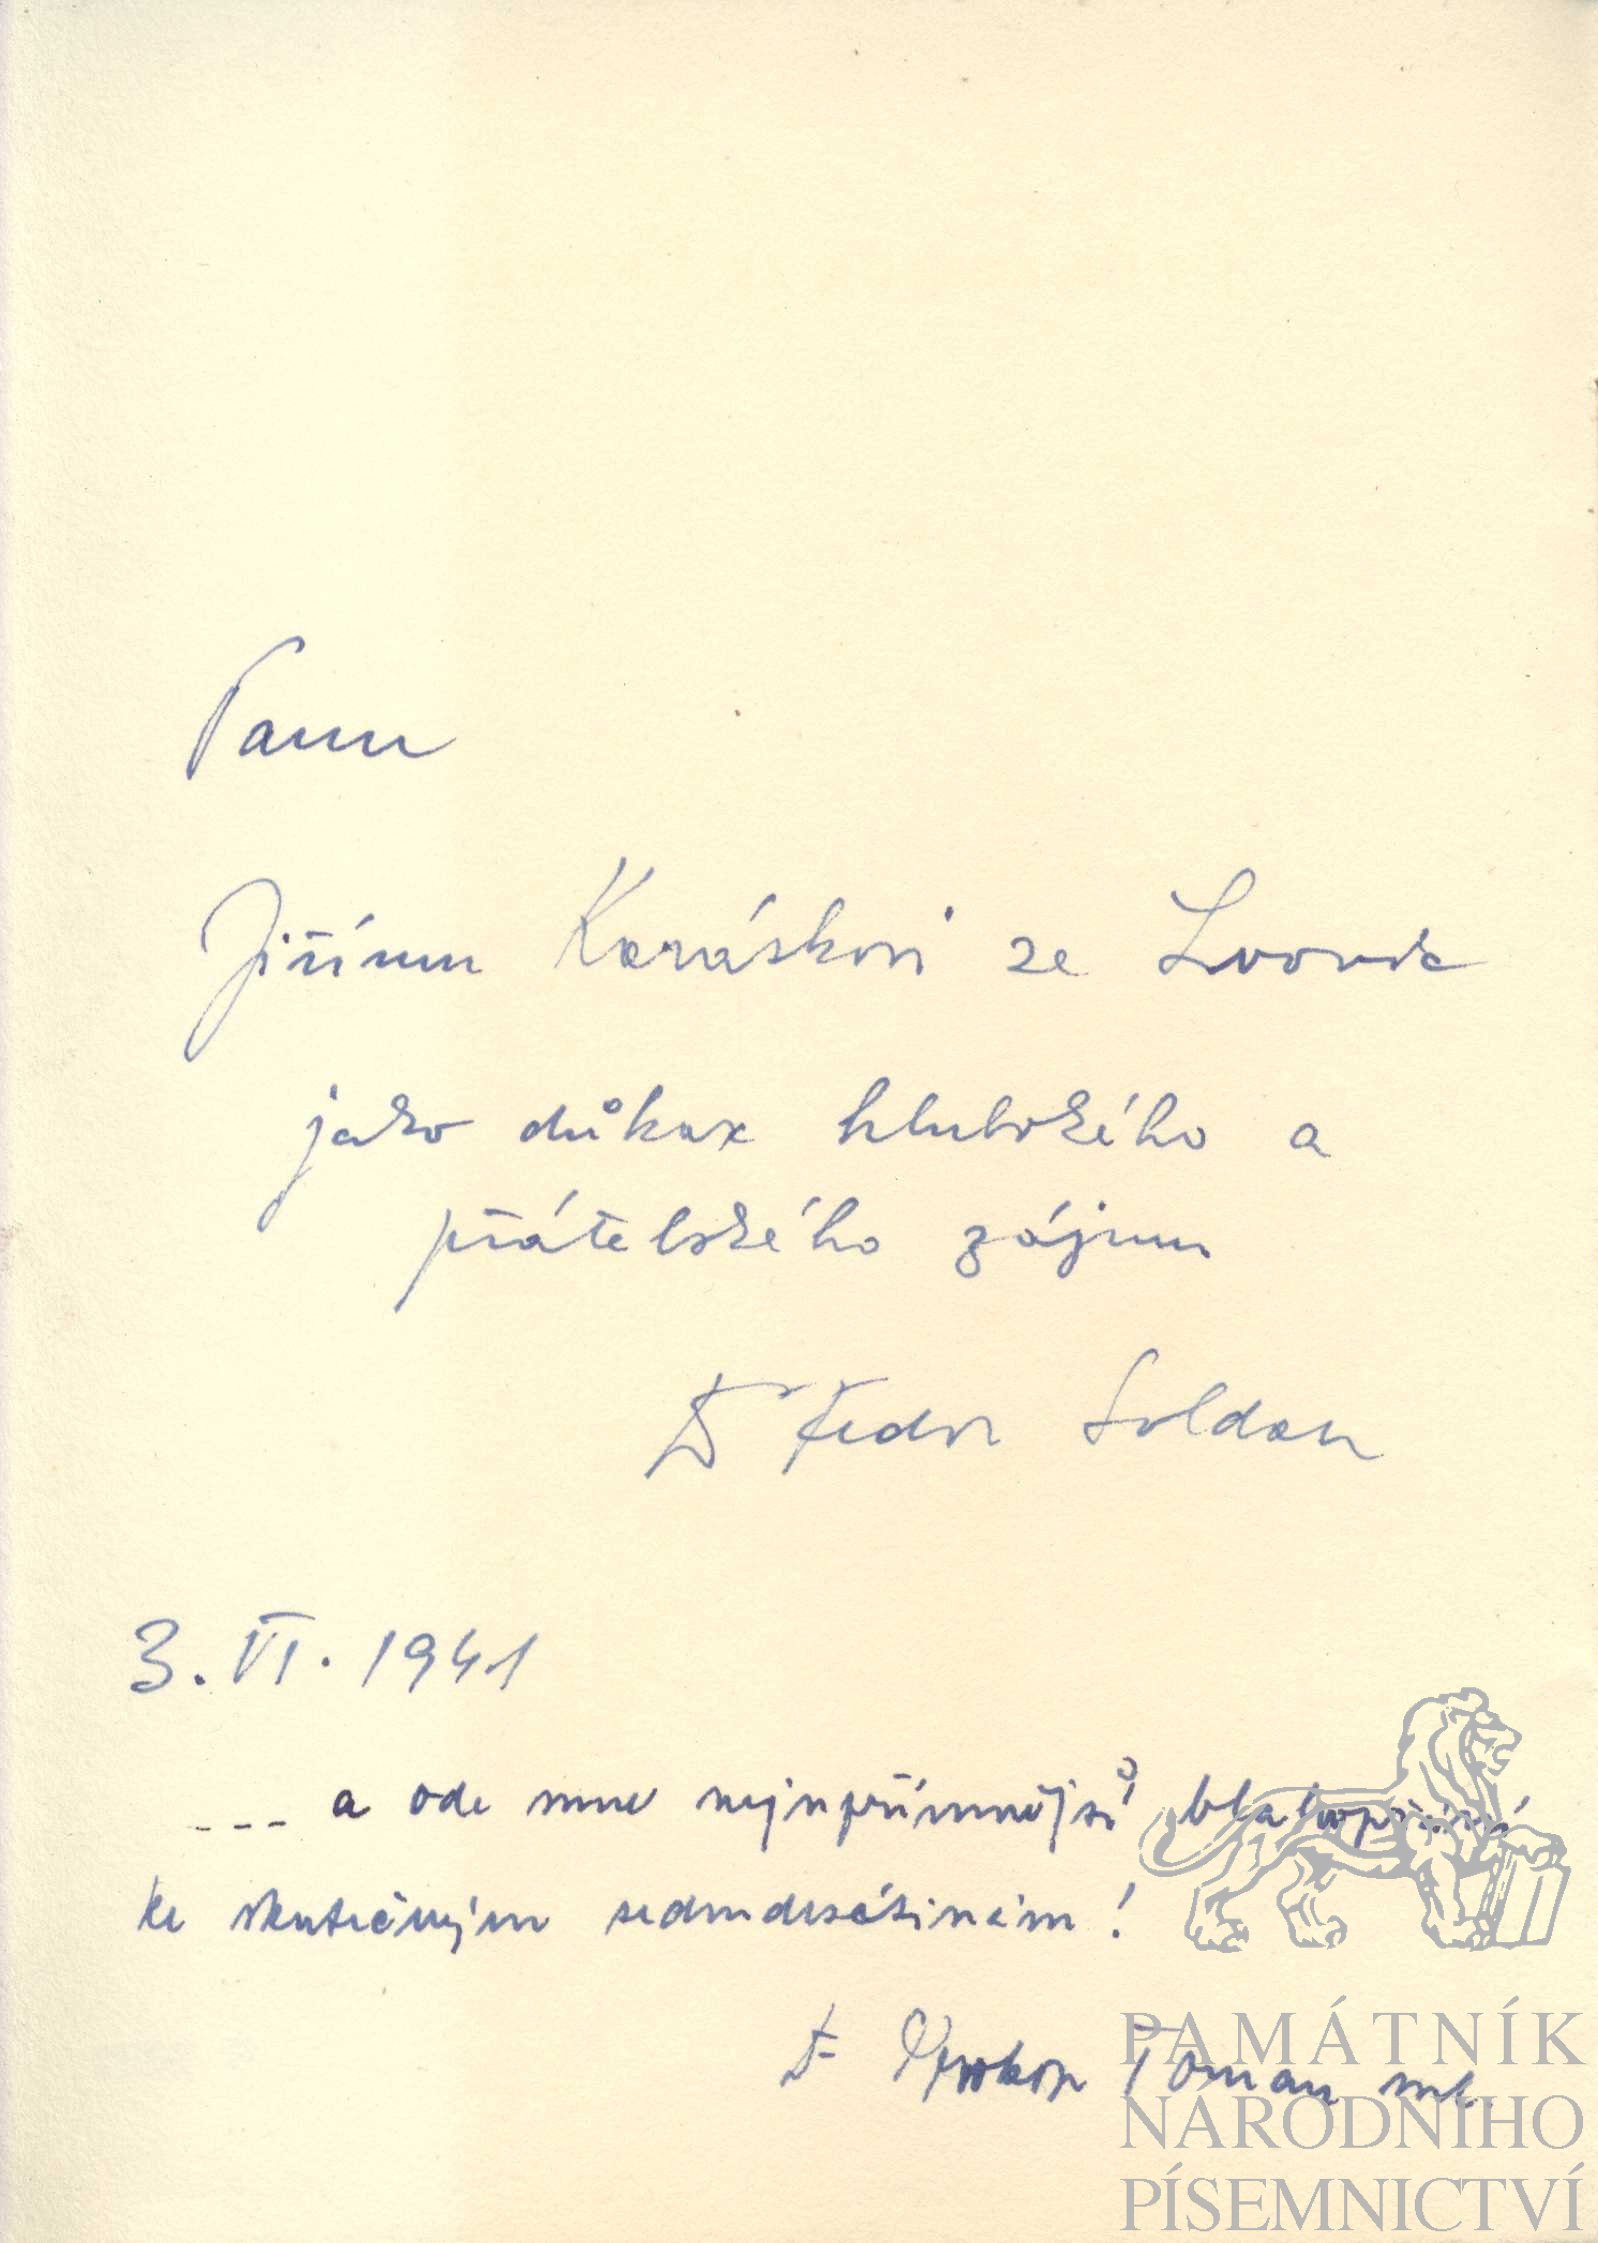 Panu
Jiřímu Karáskovi ze Lvovic
jako důkaz hlubokého a
přátelského zájmu
Dr Fedor Soldan
3. VI. 1941
--- a ode mne nejupřímnější blahopřání
ke skutečným sedmdesátinám!
Dr Prokop Toman ml.
PAMÁTNÍK
NÁRODNÍHO
PÍSEMNICTVÍ